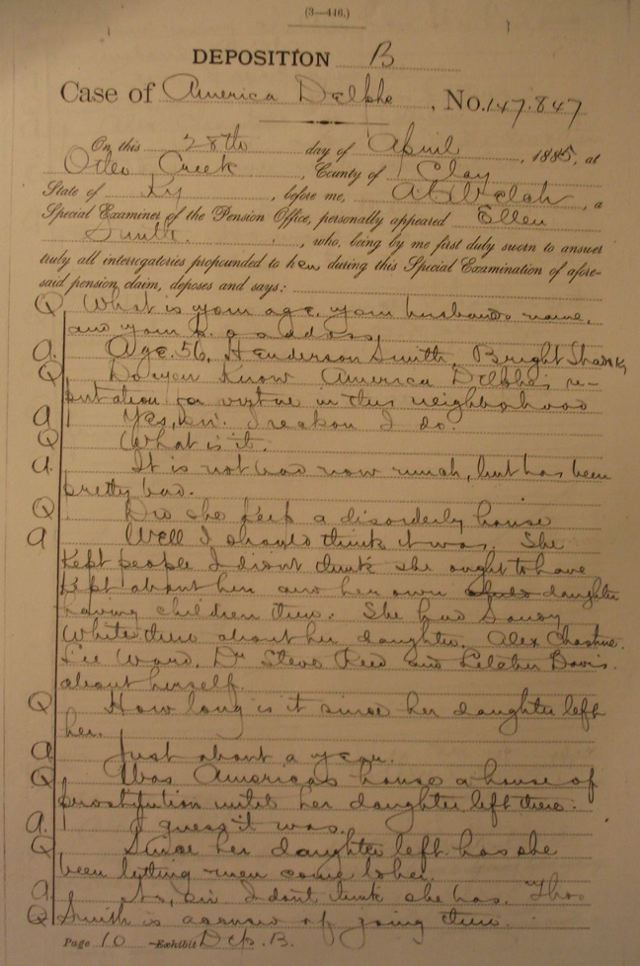 (3—446.)
DEPOSITION B
Case of America Delpha, No. 147.847
On this 28th day of April, 1885, at
Otter Creek, County of Clay
State of Ky, before me, a
Special Examiner of the Pension Office, personally appeared Ellen
Smith, who, being by me first duly sworn to answer
truly all interrogatories propounded to her during this Special Examination of afore-
said pension claim, deposes and says:
Q What is your age, your husbands name,
and your p. o address
a. Age. 56, Henderson Smith, Bright Shank,
Q Do you know America Delpha's re-
putation for virtue in this neighborhood
a Yes, sir. I reckon I do.
Q What is it.
a. It is not bad now much, but has been
pretty bad.
Q Did she keep a disorderly house
a Well I should think it was. She
kept people I didnt think she ought to have
kept about her and her own daughter
having children there. She had
White there about her daughter. Alex
Lee Ward. Dr Steve Reed and Davis.
about herself.
Q How long is it since her daughter left
her.
a Just about a year.
Q Was Americas house a house of
prostitution until her daughter left there.
a. I guess it was.
Q Since her daughter left has she
been letting men come to her.
a. No, sir I dont think she has. Thos
Q Smith is accused of going there.
Page 10 Exhibit Dep. B.